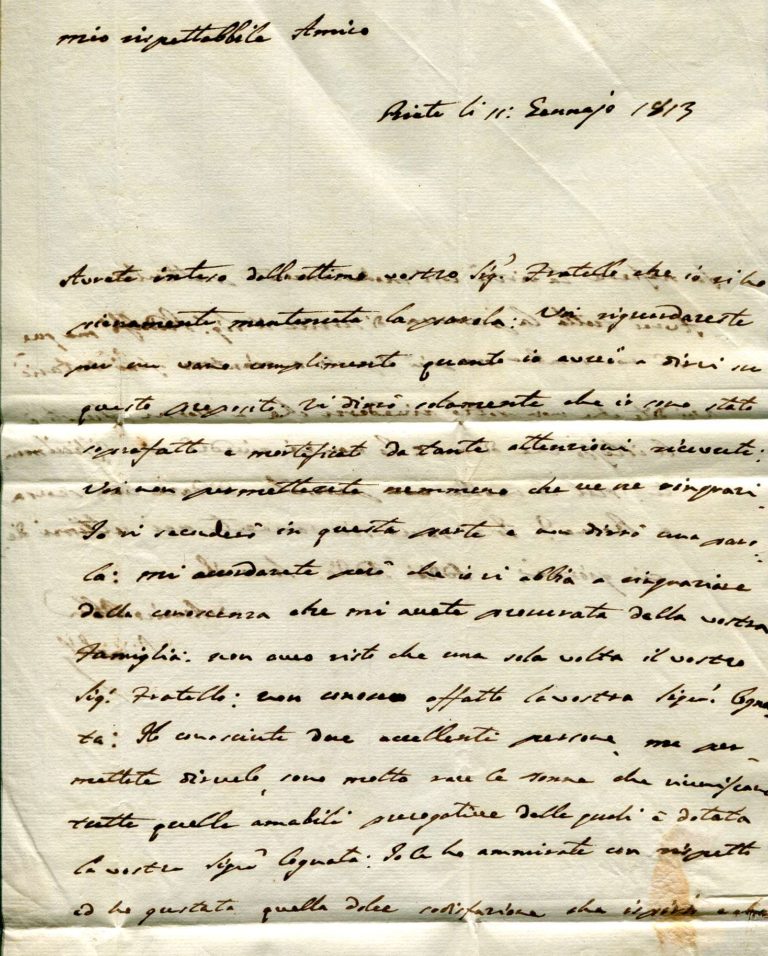 mio rispettabbile Amico
Riete li 11: Gennajo 1813
Avrete inteso dall'ottimo vostro Sigr Fratello che io vi ho
pienamente mantenuta la parola: Voi riguardareste
per un vano complimento quanto io avrei a dirvi su
questo proposito. Vi dirrò solamente che io sono stato
soprafatto e mortificat da tante attenzioni ricevute:
Voi non permetterete nemmeno che ve ne ringrazi.
Io vi secederò in questa parte e non dirrò una paro-
la: mi accordarete però che io vi abbia a ringraziare
della conoscenza che mi avete procurata della vostra
Famiglia: non avevo visto che una sola volta il vostro
Sigr Fratello: non conoscevo affatto la vostra Sigra Cogna
ta: Ho conosciute due eccellenti persone, me per-
mettete dirvelo, sono molto rare le donne che riuniscano
tutte quelle amabili prerogative delle quali è dotata
la vostra Sigra Cognata: Io le ho ammirate con rispetto
ed ho gustata quella dolce sodisfazione che